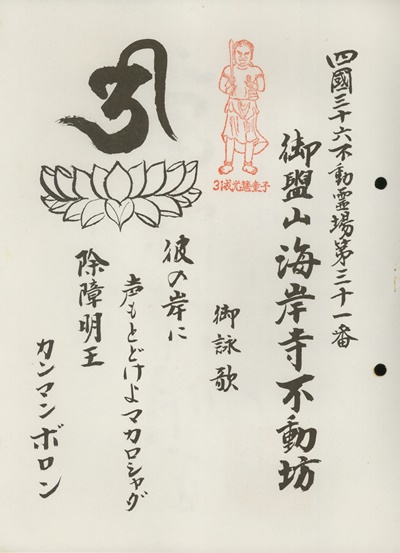 四國三十六不動霊場第三十一番
御盥山海岸寺不動坊
御詠歌
彼の岸に
声もとどけよマカロシャダ
除障明王
カンマンボロン